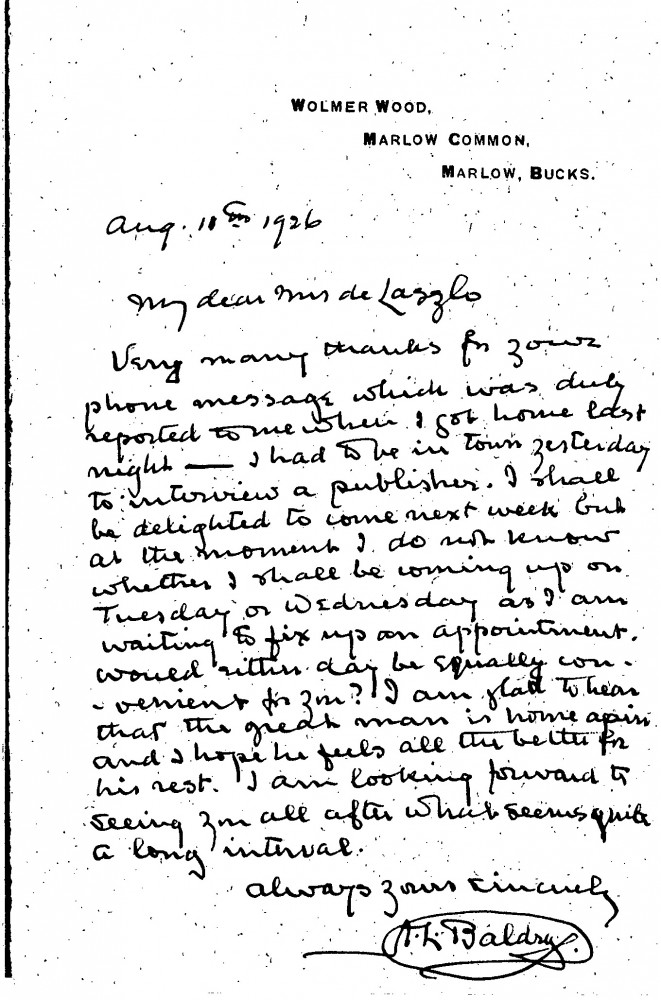 WOLMER WOOD,
MARLOW COMMON,
MARLOW, BUCKS.
Aug. 11th 1926
My dear Mrs de Laszlo
Very many thanks for your
phone message which was duly
reported to me when I got home last
night — I had to be in town yesterday
to interview a publisher. I shall
be delighted to come next week but
at the moment I do not know
whether I shall be coming up on
Tuesday or Wednesday as I am
waiting to fix up an appointment.
Would either day be equally con-
-venient for you? I am glad to hear
that the great man is home again
and I hope he feels all the better for
his rest. I am looking forward to
seeing you all after what seems quite
a long interval.
Always yours sincerely
A. L. Baldry.